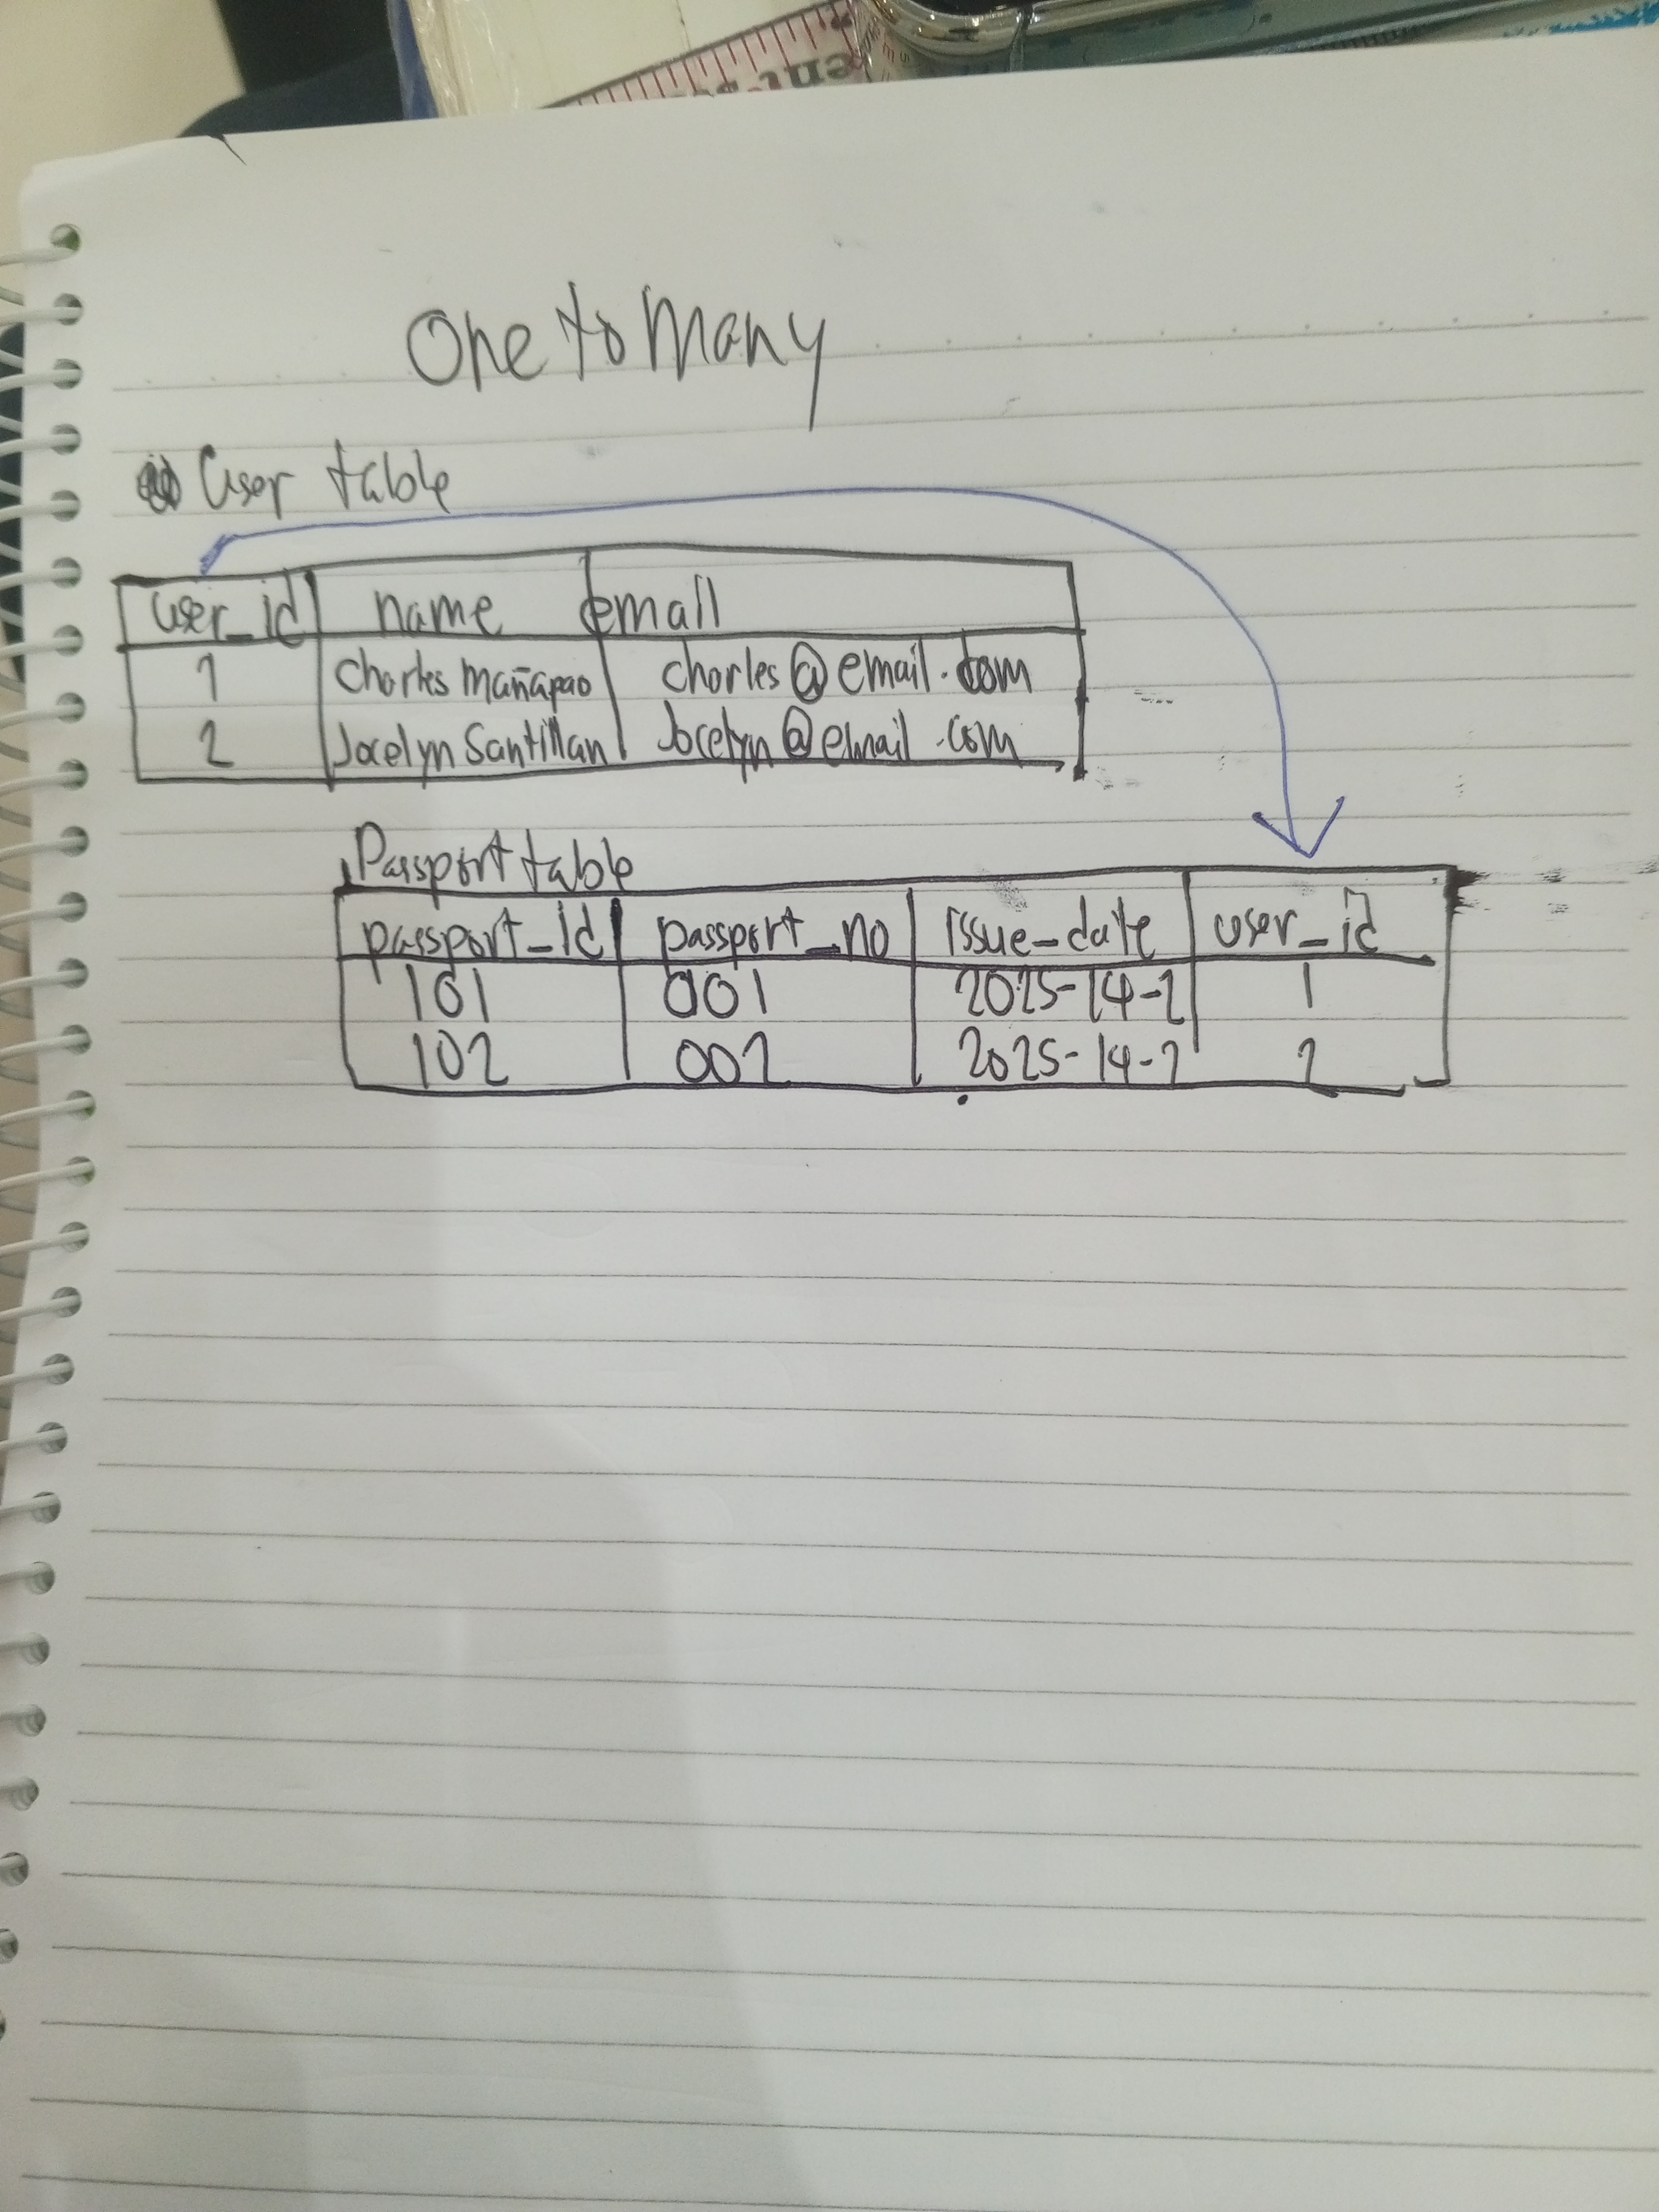 One to Many
User table
user_id name email
1 Charles Mañapao charles@email.com
2 Jocelyn Santillan Jocelyn@email.com
Passport table
passport_id passport_no issue_date user_id
101 001 2025-14-2 1
102 002 2025-14-2 2